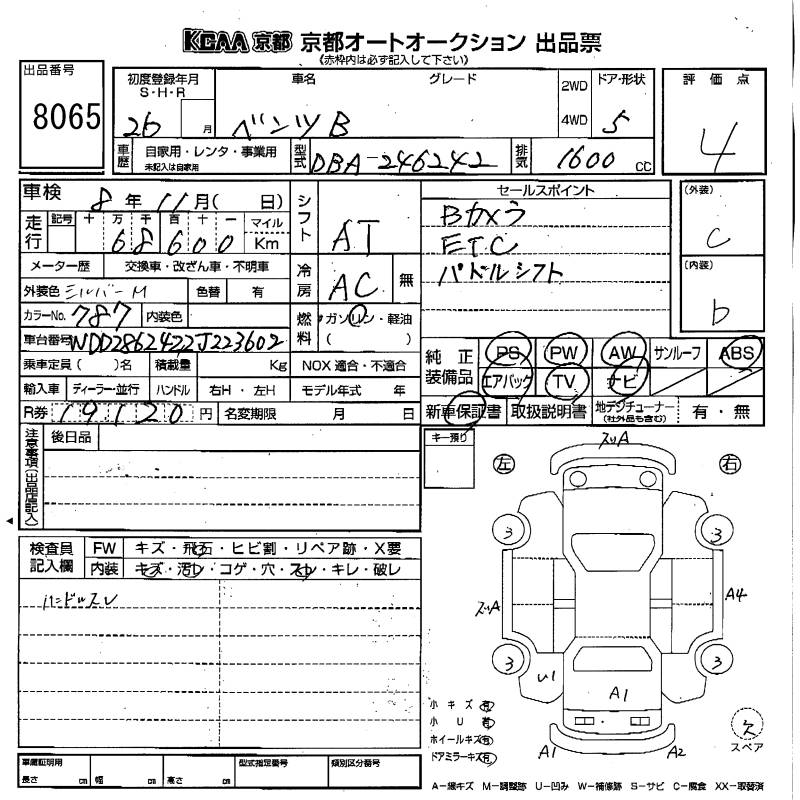 KCAA 京都 京都オートオークション 出品票
《赤枠内は必ず記入して下さい》
出品番号
8065
初度登録年月
S・H・R
26 月
車名
グレード
ベンツ B
2WD
4WD
ドア・形状
5
評価点
4
車歴
自家用・レンタ・事業用
未記入は自家用
型式
DBA-246242
排気
1600 cc
車検 8年 11月( 日)
シフト
AT
セールスポイント
Bカメラ
ETC
パドルシフト
(外装)
C
(内装)
b
走行
記号 十 万 千 百 十 一 マイル
68600 Km
メーター歴 交換車・改ざん車・不明車
冷房
AC 無
外装色 シルバーM 色替 有
カラーNo. 787 内装色
燃料
ガソリン・軽油
( )
車台番号 WDD2462422J223602
乗車定員( )名 積載量 Kg NOX 適合・不適合
輸入車 ディーラー・並行 ハンドル 右H・左H モデル年式 年
R券 19120 円 名変期限 月 日
純正装備品
PS PW AW サンルーフ ABS
エアバック TV ナビ
新車保証書 取扱説明書 地デジチューナー (社外品も含む) 有・無
注意事項(出品店記入)
後日品
キー預り
左
右
スリA
3
3
スリA
A4
3
3
U1
A1
A1
A2
検査員記入欄
FW キズ・飛石・ヒビ割・リペア跡・X要
内装 キズ・汚レ・コゲ・穴・スレ・キレ・破レ
ハンドルスレ
小キズ 有
小U 有
ホイールキズ 有
ドアミラーキズ 有
欠
スペア
車庫証明用
長さ cm 幅 cm 高さ cm
型式指定番号
類別区分番号
A-線キズ M-調整跡 U-凹み W-補修跡 S-サビ C-腐食 XX-取替済